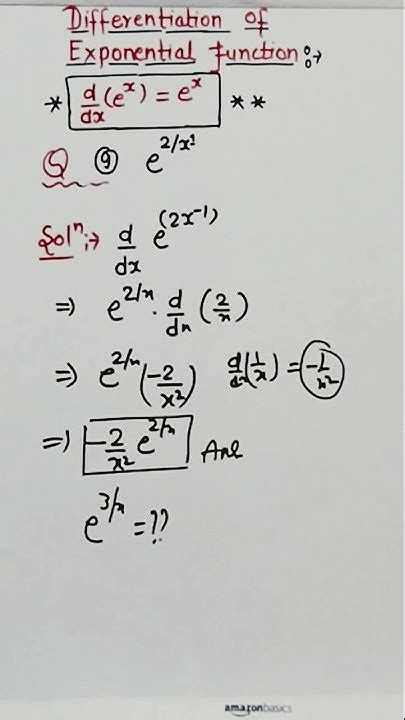 Differentiation of
Exponential Function:→
* d/dx (eˣ) = eˣ **
Q ⑨ e^(2/x¹)
Solⁿ:→ d/dx e^(2x⁻¹)
⇒ e^(2/x) · d/dx (2/x)
⇒ e^(2/x) (-2/x²) d/dx (1/x) = -1/x²
⇒ -2/x² e^(2/x) Ans
e^(3/x) = ??
amazonbasics